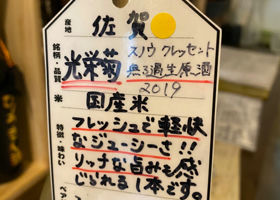 産地
佐賀
銘柄・品質
光栄菊
スノウ クレッセント
無ろ過生原酒
2019
米
国産米
特徴・味わい
フレッシュで軽快
なジューシーさ!!
リッチな旨みも感
じられる1本です。
ペア